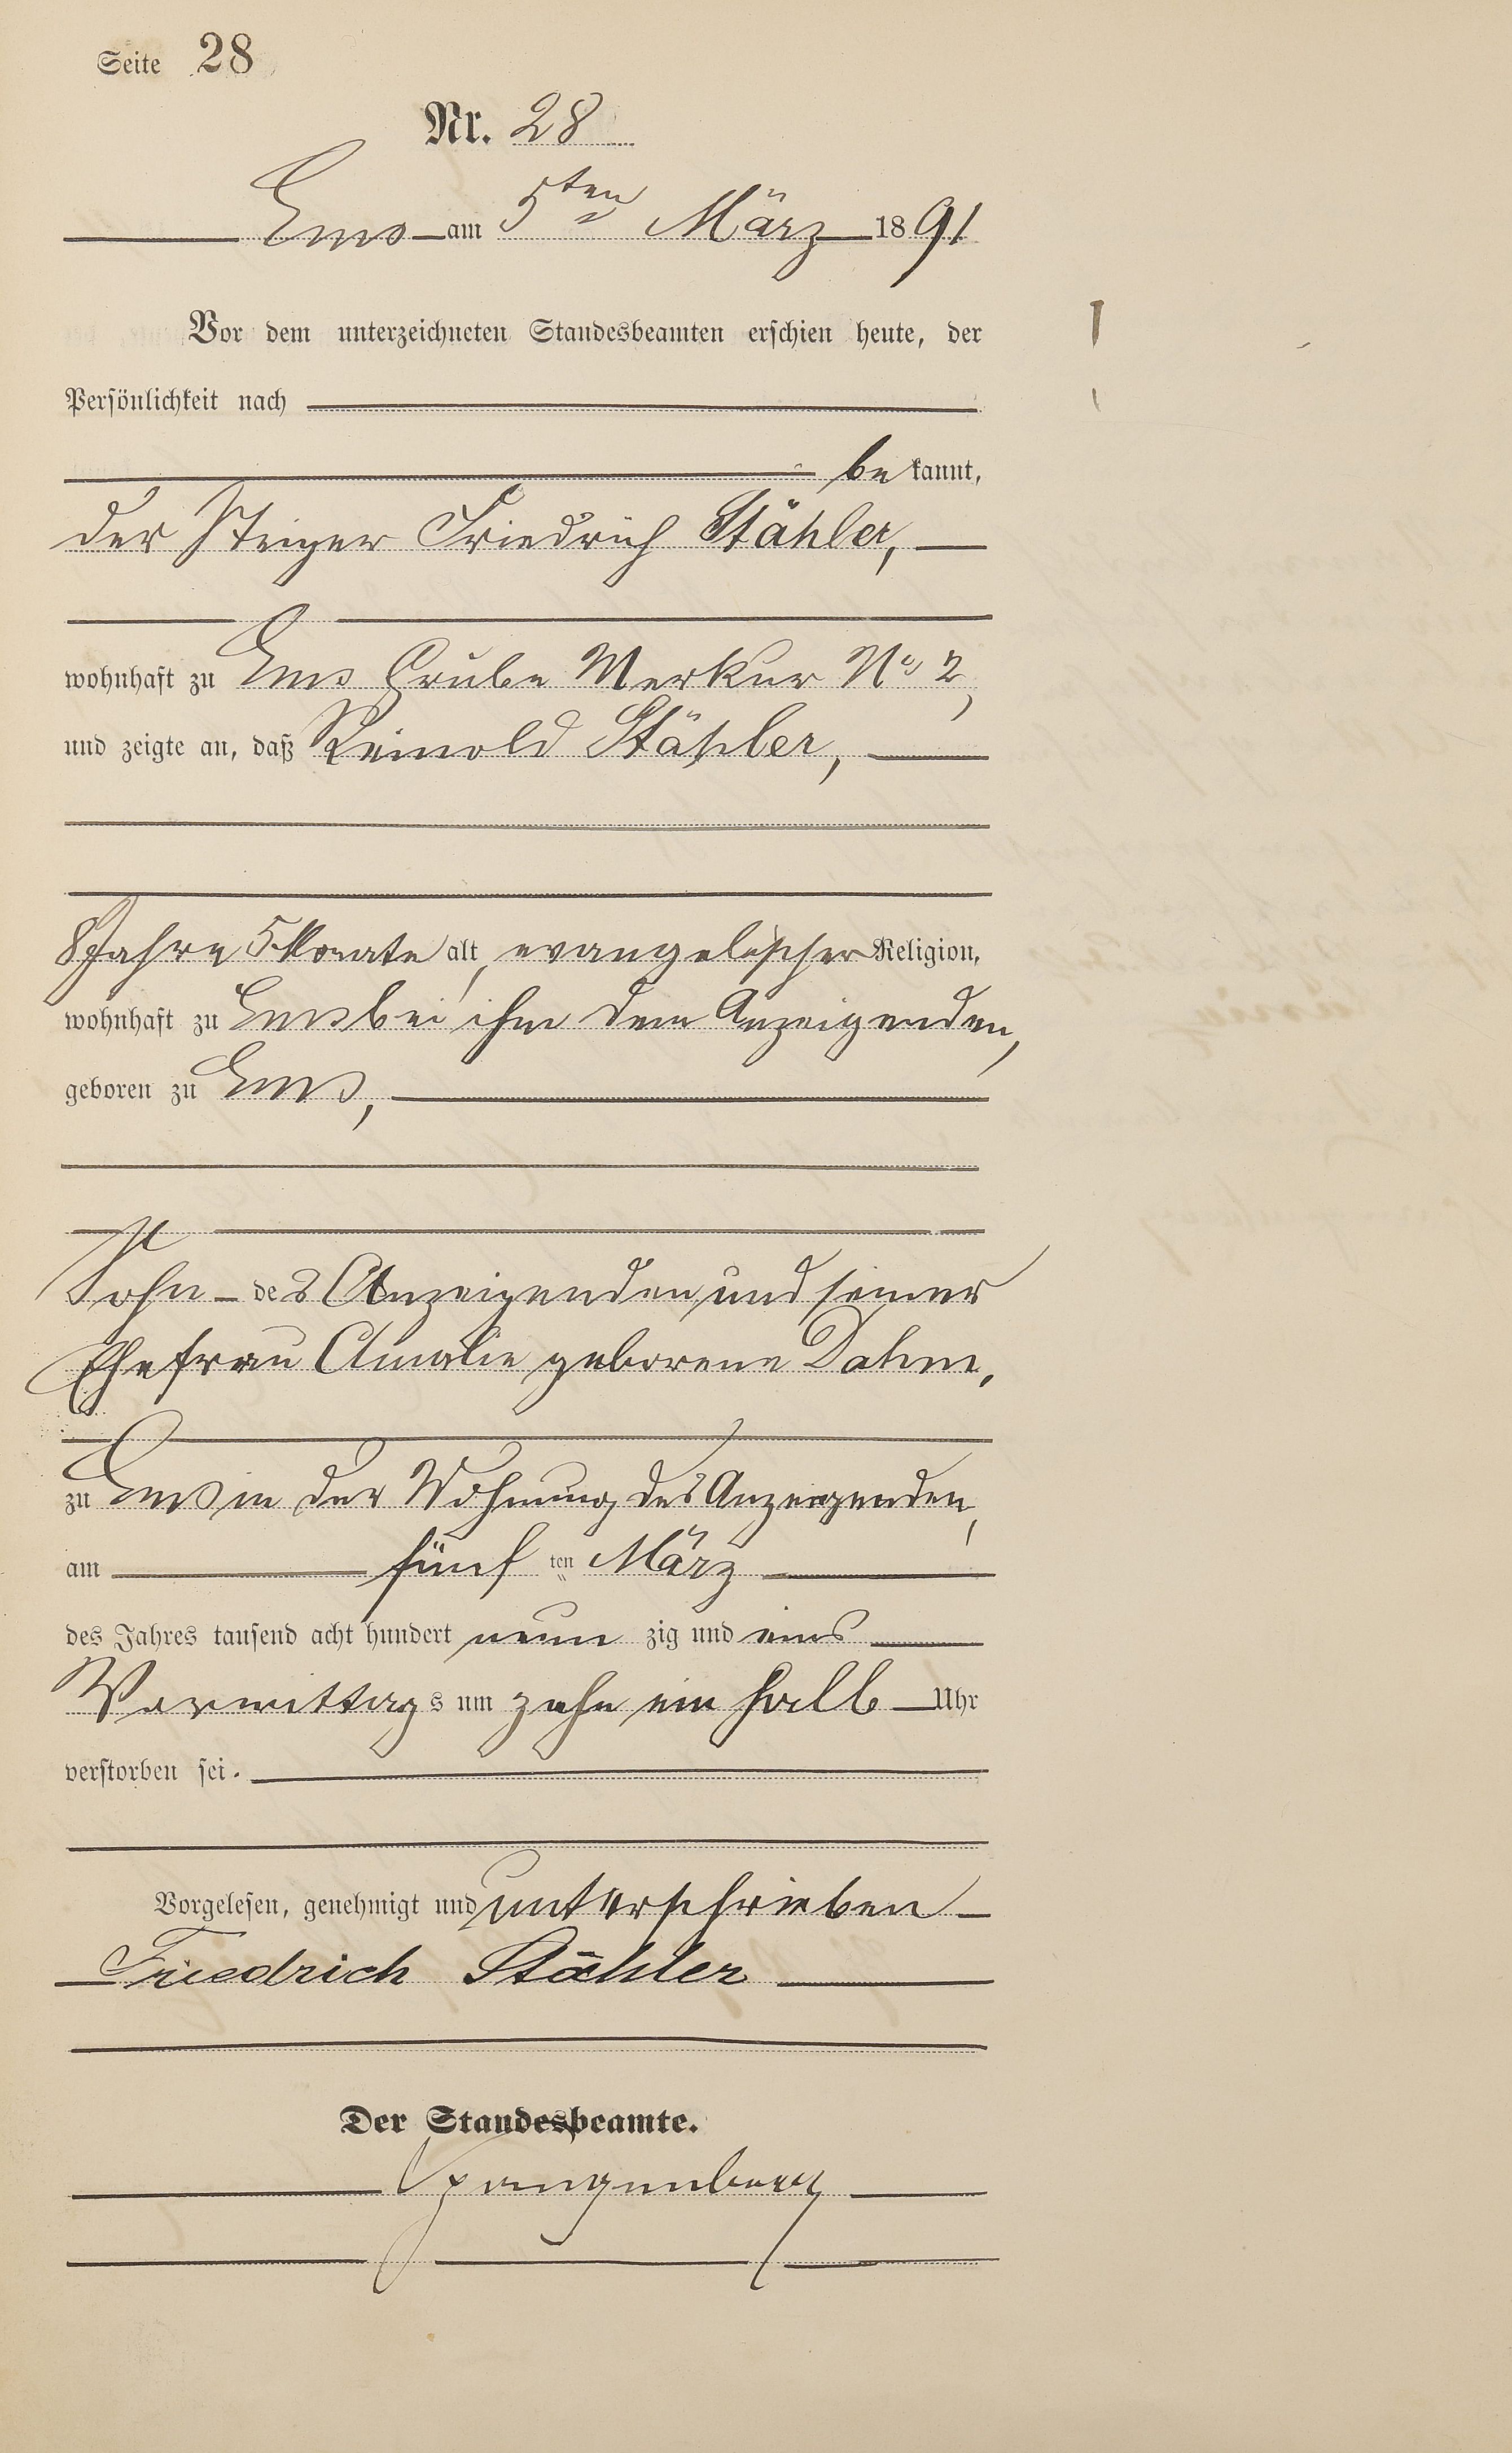 Seite 28
Nr. 28
Ems am 5ten März 1891
Vor dem unterzeichneten Standesbeamten erschien heute, der
Persönlichkeit nach
be kannt,
der Steiger Friedrich Stähler,
wohnhaft zu Ems Grube Merkur No 2,
und zeigte an, daß Reinold Stähler,
8 Jahre 5 Monate alt, evangelischer Religion,
wohnhaft zu Ems bei ihm dem Anzeigenden,
geboren zu Ems,
Sohn des Anzeigenden und seiner
Ehefrau Amalie geborene Dahm,
zu Ems in der Wohnung des Anzeigenden,
am fünf ten März
des Jahres tausend acht hundert neun zig und eins
Vormittags um zehn ein halb Uhr
verstorben sei.
Vorgelesen, genehmigt und unterschrieben
Friedrich Stähler
Der Standesbeamte.
Spangenberg